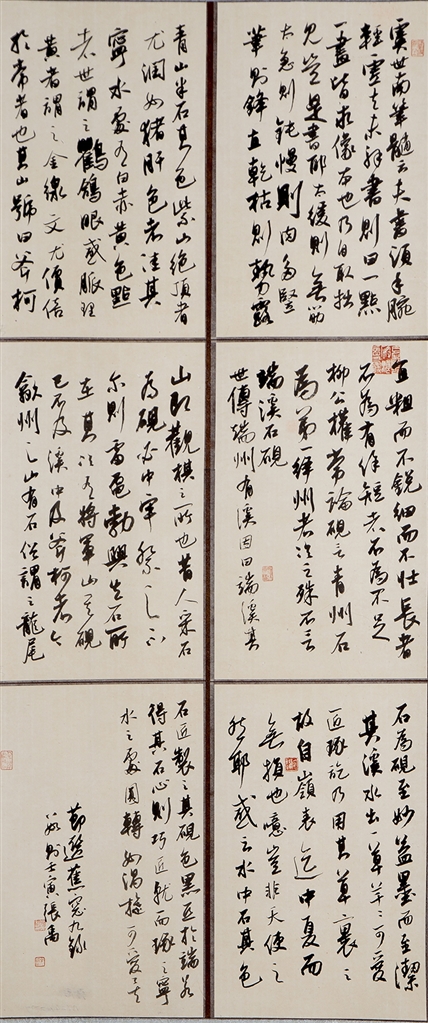 虞世南筆髓云夫書須手腕
輕虛夫未解書則曰一點
一畫皆求像本也乃自取拙
見豈是書耶太緩則無筋
太急則鈍慢則肉多豎
筆則鋒直乾枯則勢露
宜粗而不銳細而不壯長者
不為有餘短者不為不足
柳公權常論硯言青州石
為第一絳州者次之殊不言
端溪石硯
世傳端州有溪因曰端溪其
石為硯至妙益墨而至潔
其溪水出一草芊芊可愛
匠琢訖乃用其草裹之
故自嶺表迄中夏而
無損也噫豈非天使之
然耶或云水中石其色
青山半石其色紫山絕頂者
尤潤如豬肝色者佳其
寧水處有白赤黃色點
者世謂之鸜鵒眼或脈理
黃者謂之金線文尤價倍
於常者也其山號曰斧柯
山即觀棋之所也昔人采石
為硯必中牢祭之不
爾則雷電勃興失石所
在其次有將軍山其硯
已不及溪中及斧柯者今
歙州之山有石俗謂之龍尾
石匠製之其硯色黑亞於端若
得其石心則巧匠就而琢之寧
水之處圓轉如渦旋可愛矣
節選蕉窗九錄
歲則壬寅張禹